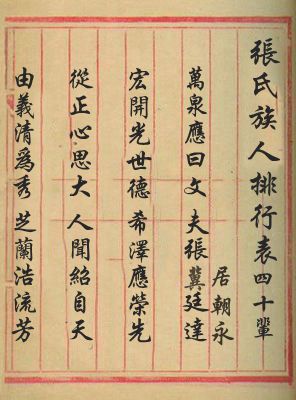 張氏族人排行表四十輩
居朝永
萬泉應曰文夫張冀廷達
宏開光世德希澤應榮先
從正心思大人聞紹自天
由義清為秀芝蘭浩流芳